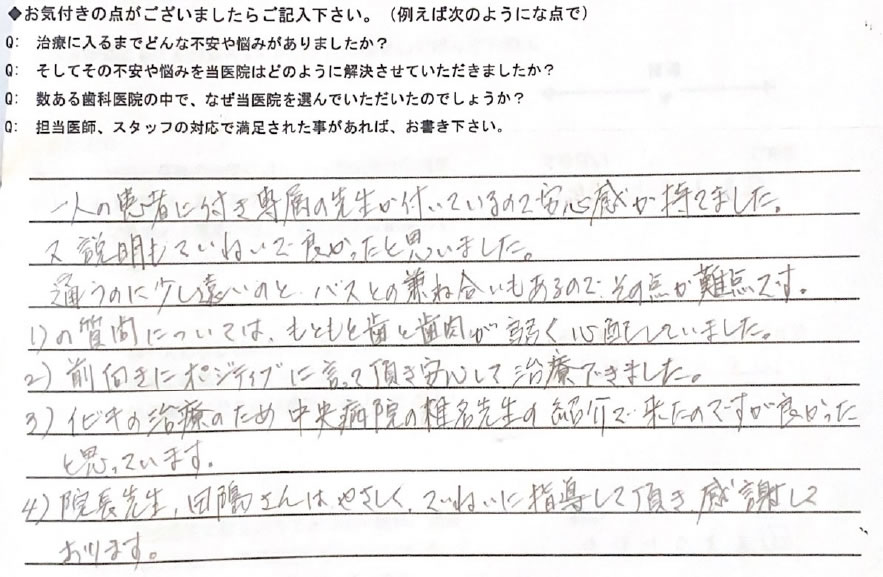 ◆お気付きの点がございましたらご記入下さい。（例えば次のようにな点で）
Q: 治療に入るまでどんな不安や悩みがありましたか？
Q: そしてその不安や悩みを当医院はどのように解決させていただきましたか？
Q: 数ある歯科医院の中で、なぜ当医院を選んでいただいたのでしょうか？
Q: 担当医師、スタッフの対応で満足された事があれば、お書き下さい。
一人の患者に付き専属の先生が付いているので安心感が持てました。
又説明もていねいで良かったと思いました。
通うのに少し遠いのと、バスとの兼ね合いもあるので、その点が難点です。
1)の質問については、もともと歯と歯肉が弱く心配していました。
2)前向きにポジティブに言って頂き安心して治療できました。
3)イビキの治療のため中央病院の椎名先生の紹介で来たのですが良かった
と思っています。
4)院長先生、田隝さんはやさしく、ていねいに指導して頂き、感謝して
おります。